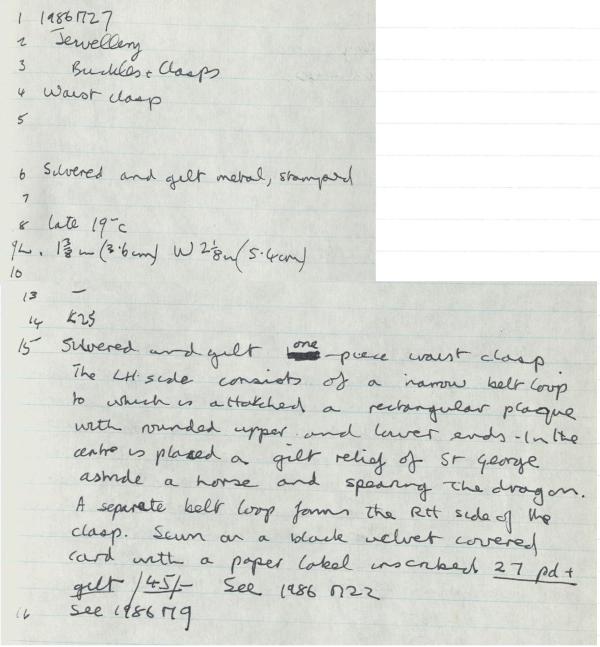 1 1986 M27
2 Jewellery
3 Buckles + Clasps
4 Waist clasp
5
6 Silvered and gilt metal, stamped
7
8 late 19th c
9 L. 1 3/8 in (3.6cm) W 2 1/8 in (5.4cm)
10
13 –
14 £25
15 Silvered and gilt one-piece waist clasp.
The LH side consists of a narrow belt loop
to which is attatched a rectangular plaque
with rounded upper and lower ends. In the
centre is placed a gilt relief of St George
astride a horse and spearing the dragon.
A separate belt loop forms the RH side of the
clasp. Sewn on a black velvet covered
card with a paper label inscribed 27 pd +
gilt /45/- See 1986 M22
16 See 1986 M9